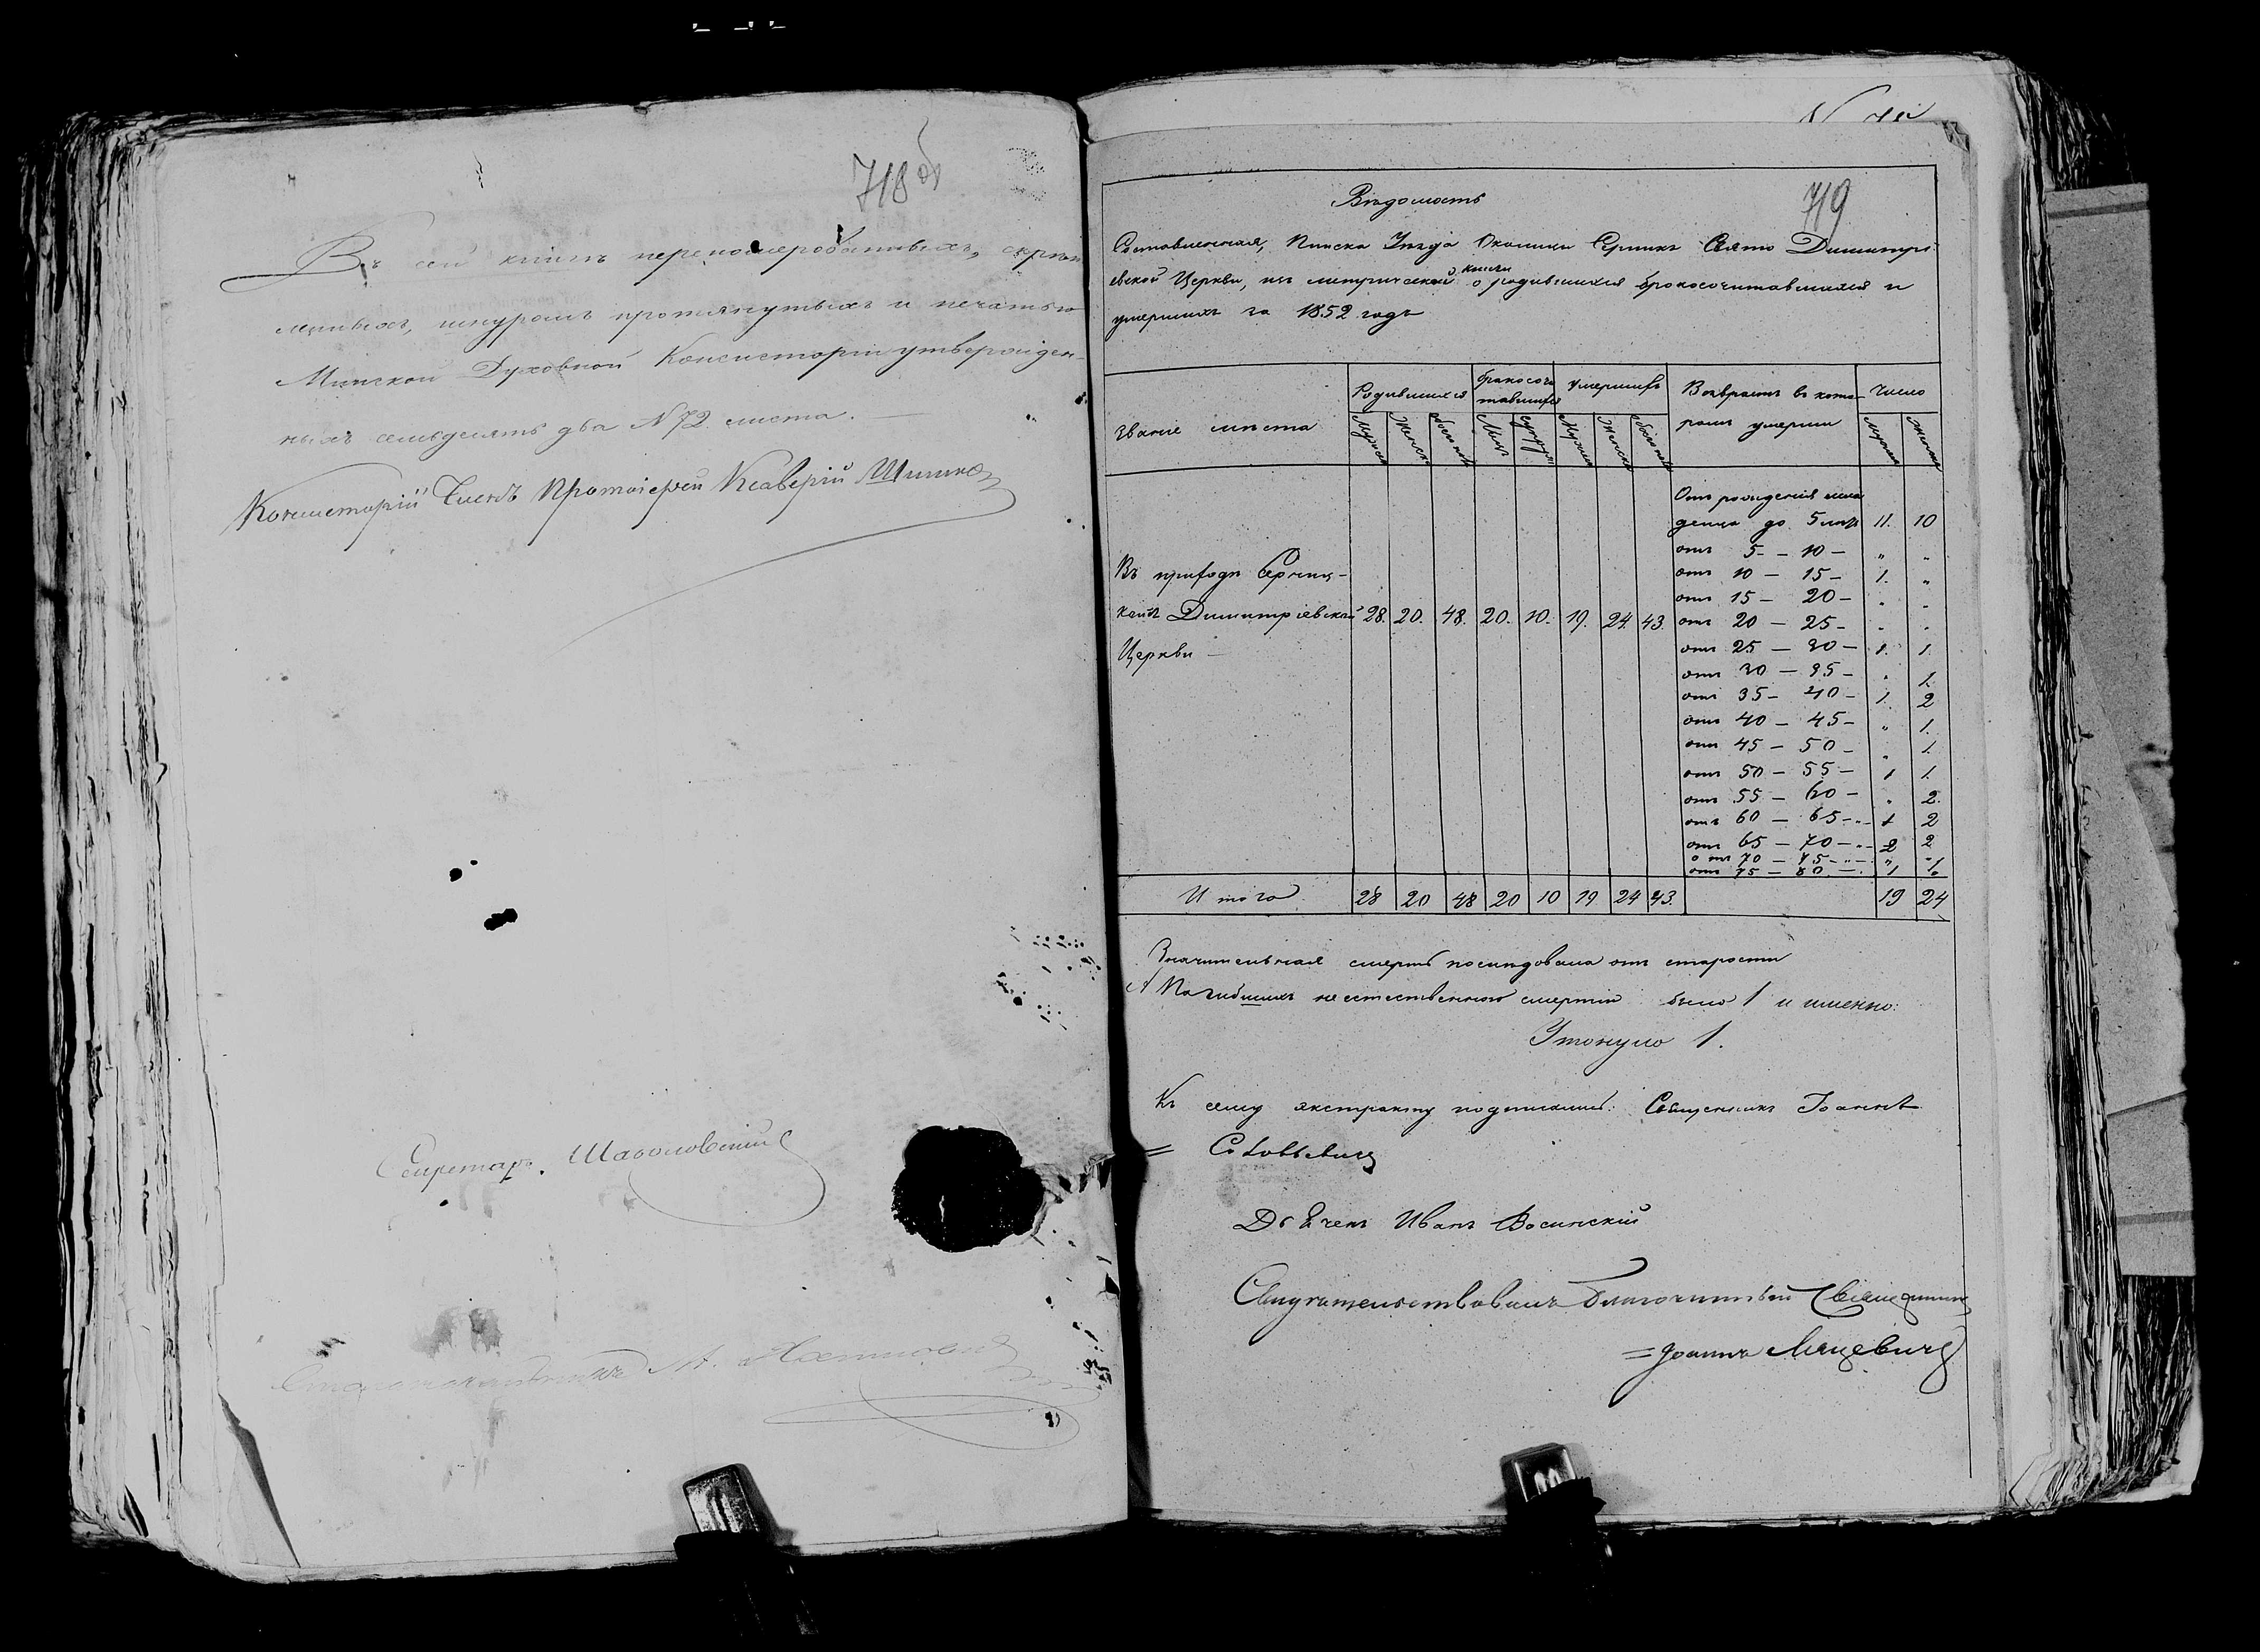 718 об
Въ сей книгѣ перенумерованныхъ, скрѣп
ленныхъ, шнуромъ протянутыхъ и печатью
Минской Духовной Консисторіи утвержден-
ныхъ семьдесятъ два N 72 листа. —
Консисторій Членъ Протоіерей Ксаверій
Секретарь
719
Вѣдомость
Составленная, Пинска Уѣзда Околицы Серникъ Свято Димитрі-
евской Церкви, изъ метрической книги о родившихся бракосочитавшихся и
умершихъ за 1852 годъ
Званіе мѣста
Родившихся
бракосоче
тавшихся
Умершихъ
Возрастъ въ кото-
ромъ умерли
Число
Отъ рожденія мла
денца до 5 лѣтъ 11. 10
отъ 5 - - 10 - „ „
отъ 10 — 15 - 1. „
отъ 15 — 20 - „ „
Въ приходѣ Серниц-
кой Димитріевской 28. 20. 48. 20. 10. 19. 24. 43. отъ 20 — 25 - „ „
Церкви —
отъ 25 — 30 — 1. 1.
отъ 30 — 35 - „ 1.
отъ 35 - 40 - 1. 2
отъ 40 — 45 - „ 1.
отъ 45 — 50 - „ 1.
отъ 50 — 55 - 1 1.
отъ 55 — 60 - „ 2.
отъ 60 — 65 - 1 2
отъ 65 — 70 - 2 2
отъ 70 — 75 - „ „
отъ 75 — 80 - 1 1.
Итого 28 20 48 20 10 19 24 43. 19 24
Значительная смерть послѣдовала отъ старости
А Погибшихъ неестественною смертію было 1 и именно:
Утонуло 1.
Къ сему экстракту подписались: Священникъ Іоаннъ
= Соловьевичъ
Дьячекъ Иванъ Восинскій
Свидѣтельствовалъ Благочинный Священникъ
= Іоаннъ Мацевичъ